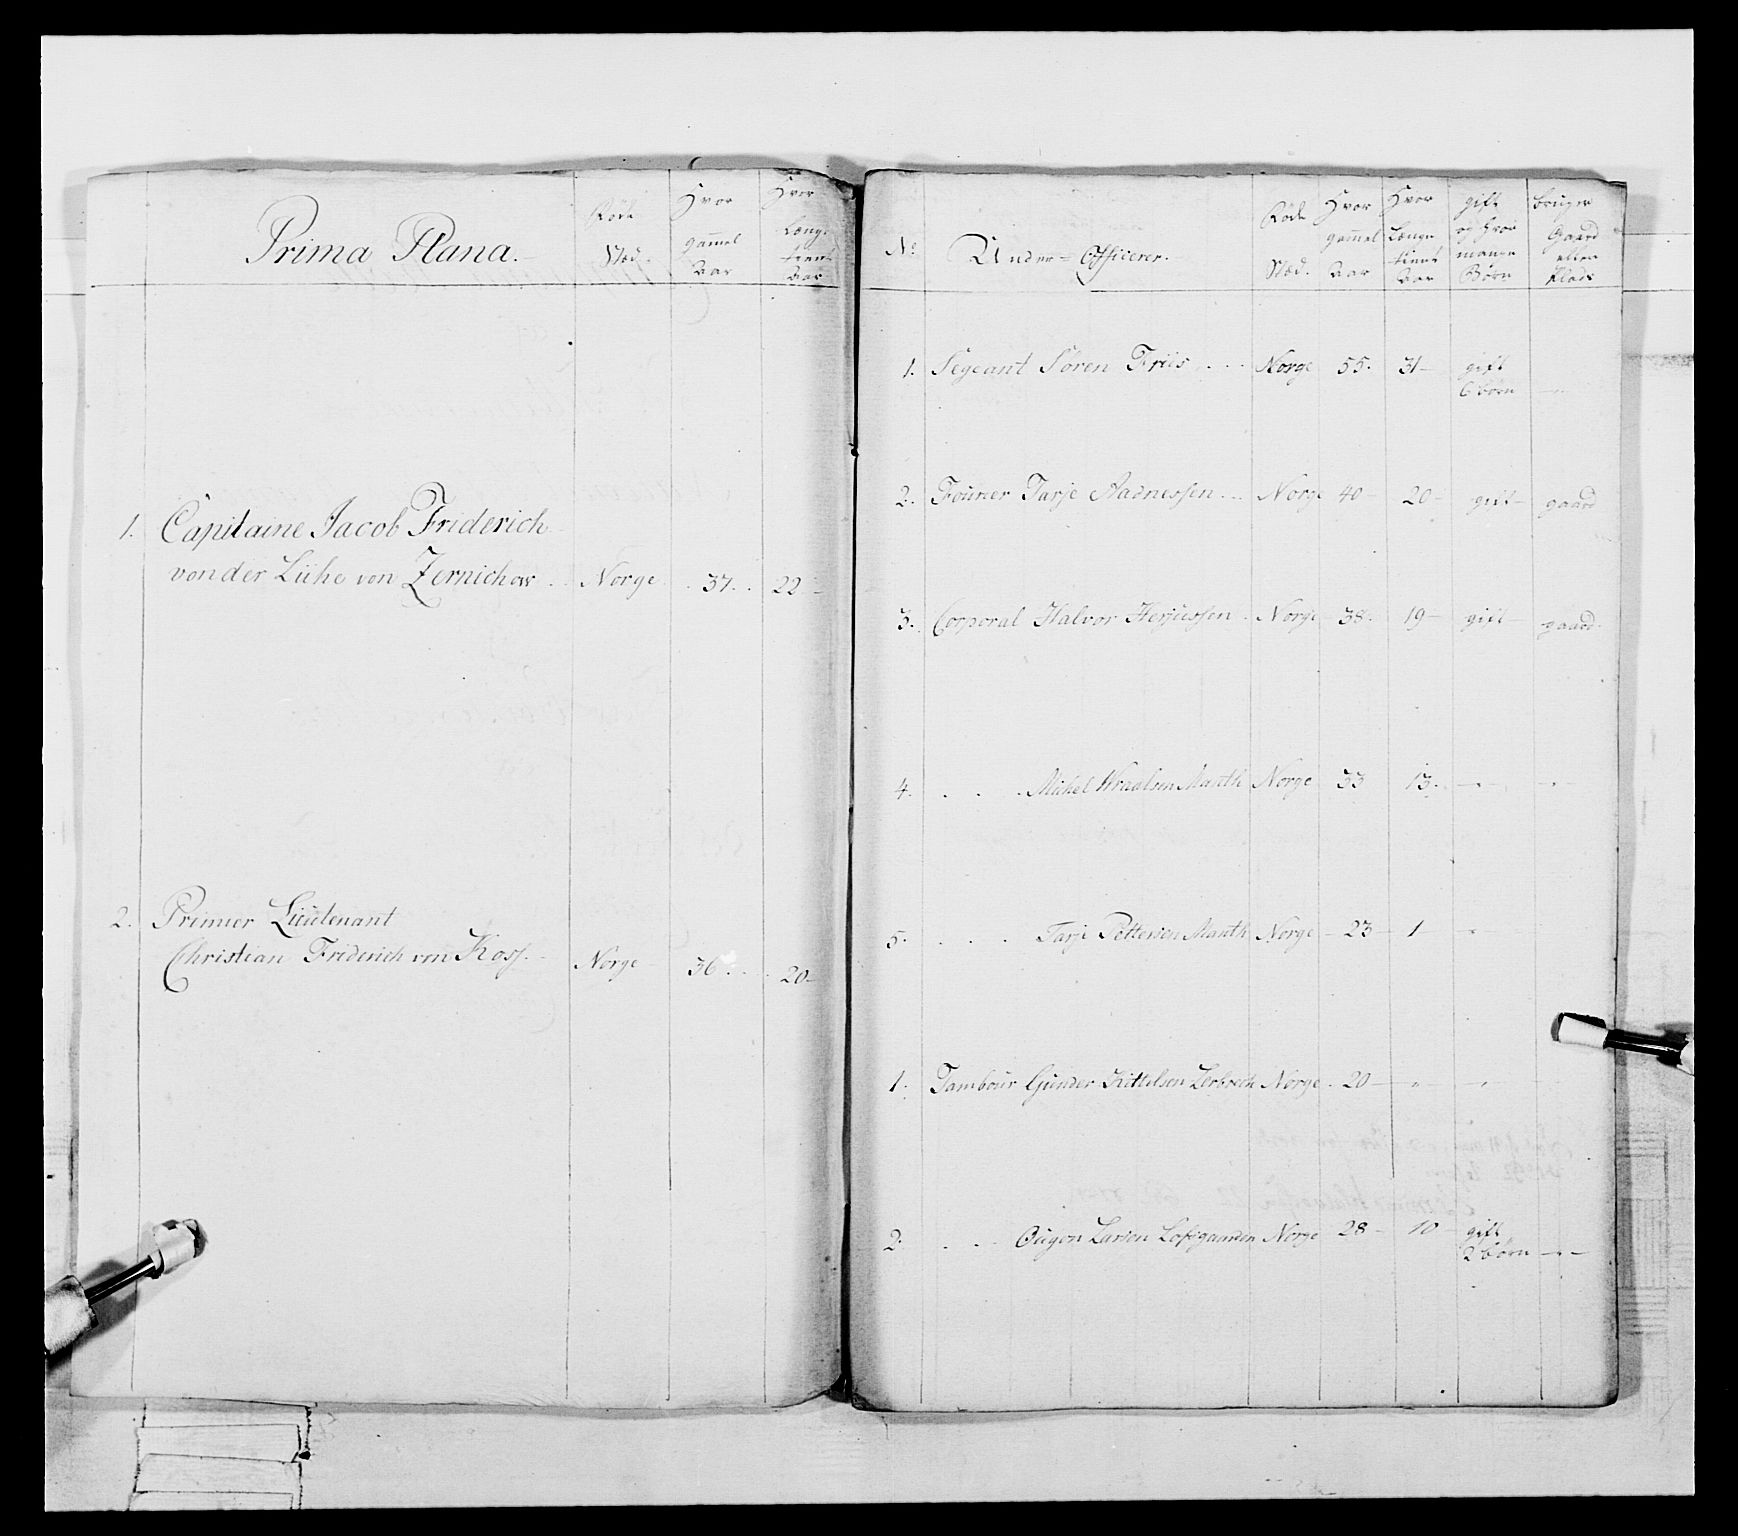 Prima Plana.
Föde Stæd.
Hvor gammel Aar
Hvor Længe tient Aar
1. Capitaine Jacob Friderich
von der Lühe von Zernichow . . Norge . . 37 . . 22 –
2. Premier Lieutenant
Christian Friderich von Koss. – Norge – 36 . . . 20 –
No
Under-Officerer.
Föde Stæd.
Hvor gammel Aar
Hvor Længe tient Aar
gift og hvor mange Börn
bruger Gaard eller Plads
1. Segeant Sören Friis . . . Norge 55. 31 – gift
6 börn – " –
2. Fourier Tarje Aadnessen . . . Norge 40 – 20 – gift – gaard
3. Corporal Halvor Herjussen . Norge – 38. 19 – gift – gaard.
4. . . . Michel Wraalsen Manth Norge 33 13. – " – – " –
5. . . . Tarje Pettersen Manth Norge – 23 – 1 "
1. Tambour Gunder Kittelsen Norge . 20 – " "
2. . . Larsen Norge 28 – 10 – gift
2 börn – " –